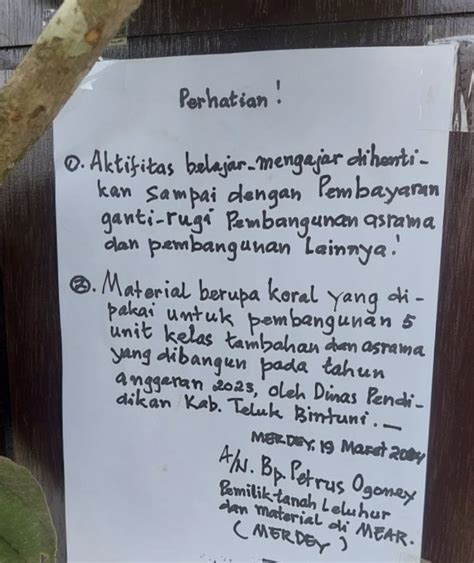 Perhatian !
①. Aktifitas belajar-mengajar dihenti-
kan sampai dengan Pembayaran
ganti-rugi Pembangunan asrama
dan pembangunan Lainnya!
②. Material berupa koral yang di-
pakai untuk pembangunan 5
unit kelas tambahan dan asrama
yang dibangun pada tahun
anggaran 2023, oleh Dinas Pendi-
dikan Kab. Teluk Bintuni. —
MERDEY, 19 Maret 2024
A/N. Bp. Petrus Ogoney
Pemilik tanah Leluhur
dan material di MEAR.
( MERDEY )